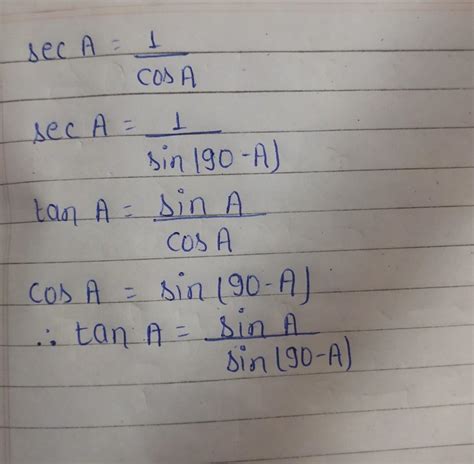 sec A = 1/cos A
sec A = 1/sin(90-A)
tan A = sin A/cos A
cos A = sin(90-A)
∴ tan A = sin A/sin(90-A)